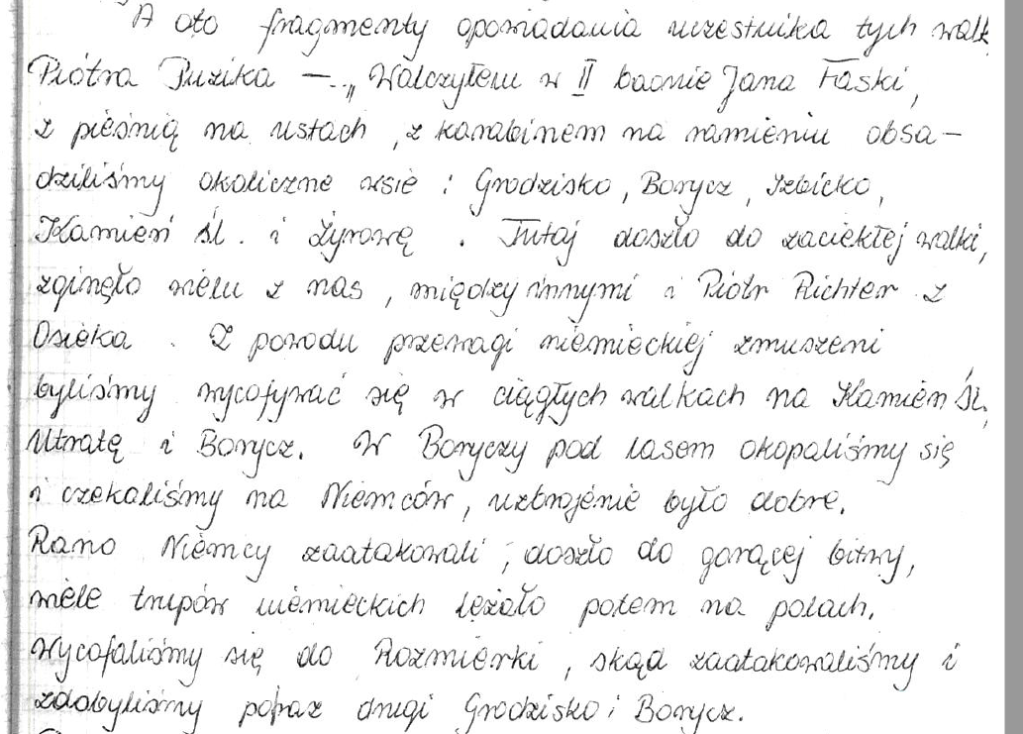 A oto fragmenty opowiadania uczestnika tych walk
Piotra Puzika — „Walczyłem w II baonie Jana Faski,
z pieśnią na ustach, z karabinem na ramieniu obsa-
dziliśmy okoliczne wsie: Grodzisko, Borycz, Izbicko,
Kamień Śl. i Żyrowę. Tutaj doszło do zaciekłej walki,
zginęło wielu z nas, między innymi i Piotr Richter z
Osieka. Z powodu przewagi niemieckiej zmuszeni
byliśmy wycofywać się w ciągłych walkach na Kamień Śl,
Utratę i Borycz. W Boryczy pod lasem okopaliśmy się
i czekaliśmy na Niemców, uzbrojenie było dobre.
Rano Niemcy zaatakowali, doszło do gorącej bitwy,
wiele trupów niemieckich leżało potem na polach.
Wycofaliśmy się do Rozmierki, skąd zaatakowaliśmy i
zdobyliśmy po raz drugi Grodzisko i Borycz.